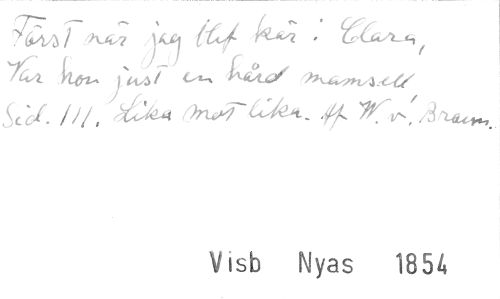 Först när jag blef kär i Clara,
Var hon just en hård mamsell
Sid. 111. Lika mot lika. Af W. v. Braun.
Visb Nyas 1854